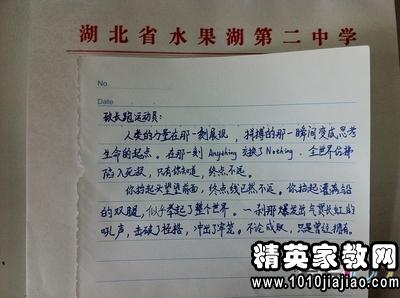 湖北省水果湖第二中学
No.
Date
致长跑运动员:
人类的力量在那一刻展现,拼搏的那一瞬间变成思考
生命的起点。在那一刻Anything变换了Nothing.全世界仿佛
陷入死寂,只有你知道,终点不远。
你抬起头望望前面,终点线已然不远。你抬起灌满铅
的双腿,似乎举起了整个世界。一刹那爆发出气贯长虹的
吼声,击破了桎梏,冲出了牢笼。不论成败,只是曾经拥有。
精英家教网
www.1010jiajiao.com